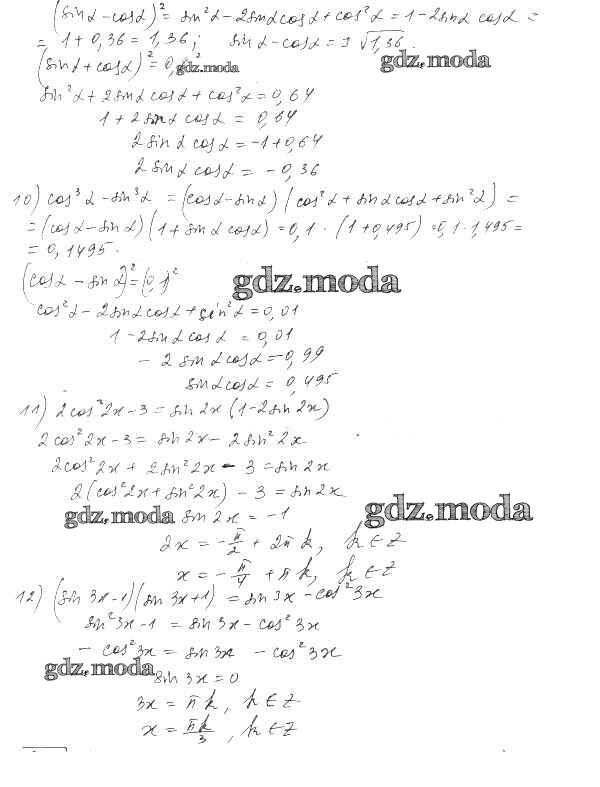 (sinα - cosα)² = sin²α - 2sinα cosα + cos²α = 1 - 2sinα cosα =
= 1 + 0,36 = 1,36; sinα - cosα = ± √1,36. gdz.moda
(sinα + cosα)² = 0, ² gdz.moda
sin²α + 2sinα cosα + cos²α = 0,64
1 + 2sinα cosα = 0,64
2 sinα cosα = -1 + 0,64
2 sinα cosα = - 0,36
10) cos³α - sin³α = (cosα - sinα) (cos²α + sinα cosα + sin²α) =
= (cosα - sinα) (1 + sinα cosα) = 0,1 · (1 + 0,495) = 0,1 · 1,495 =
= 0,1495.
(cosα - sinα)² = (0,1)² gdz.moda
cos²α - 2sinα cosα + sin²α = 0,01
1 - 2sinα cosα = 0,01
- 2 sinα cosα = -0,99
sinα cosα = 0,495
11) 2cos²2x - 3 = sin2x (1 - 2sin2x)
2cos²2x - 3 = sin2x - 2sin²2x
2cos²2x + 2sin²2x - 3 = sin2x
2(cos²2x + sin²2x) - 3 = sin2x
gdz.moda sin2x = -1 gdz.moda
2x = - π/2 + 2πk, k ∈ Z
x = - π/4 + πk, k ∈ Z
12) (sin3x - 1)(sin3x + 1) = sin3x - cos²3x
sin²3x - 1 = sin3x - cos²3x
- cos²3x = sin3x - cos²3x
gdz.moda sin3x = 0
3x = πk, k ∈ Z
x = πk/3, k ∈ Z